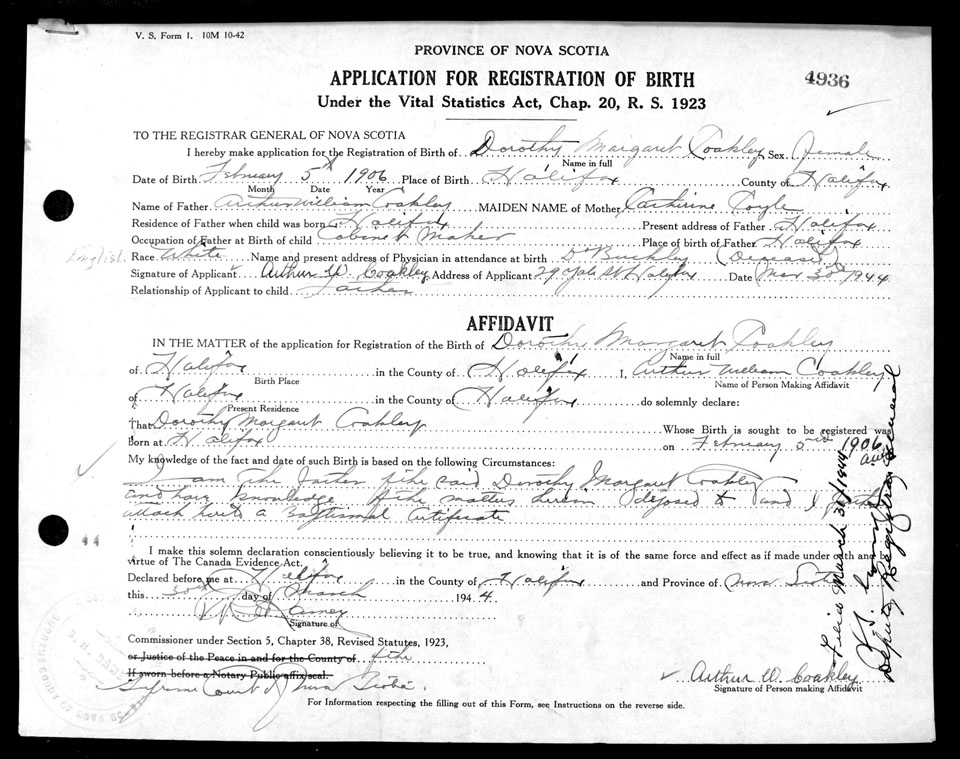 V. S. Form 1. 10M 10-42
PROVINCE OF NOVA SCOTIA
APPLICATION FOR REGISTRATION OF BIRTH
4936
Under the Vital Statistics Act, Chap. 20, R. S. 1923
TO THE REGISTRAR GENERAL OF NOVA SCOTIA
I hereby make application for the Registration of Birth of Dorothy Margaret Coakley Sex Female
Name in full
Date of Birth February 5th 1906 Place of Birth Halifax County of Halifax
Month Date Year
Name of Father Arthur William Coakley MAIDEN NAME of Mother Catherine Coyle
Residence of Father when child was born Halifax Present address of Father Halifax
Occupation of Father at Birth of child Cabinet Maker Place of birth of Father Halifax
English Race White Name and present address of Physician in attendance at birth Dr Buckley (Deceased)
Signature of Applicant Arthur W. Coakley Address of Applicant 29 Yale St Halifax Date Mar 30 1944
Relationship of Applicant to child Father
AFFIDAVIT
IN THE MATTER of the application for Registration of the Birth of Dorothy Margaret Coakley
Name in full
of Halifax in the County of Halifax I, Arthur William Coakley
Birth Place Name of Person Making Affidavit
of Halifax in the County of Halifax do solemnly declare:
Present Residence
That Dorothy Margaret Coakley Whose Birth is sought to be registered was
Born at Halifax on February 5 1906
My knowledge of the fact and date of such Birth is based on the following Circumstances:
I am the Father of the said Dorothy Margaret Coakley
and have knowledge of the matters herein deposed to and I
attach hereto a Baptismal Certificate
44
I make this solemn declaration conscientiously believing it to be true, and knowing that it is of the same force and effect as if made under oath and
virtue of The Canada Evidence Act.
Declared before me at Halifax in the County of Halifax and Province of Nova Scotia
this 30th day of March 1944
Signature of
Commissioner under Section 5, Chapter 38, Revised Statutes, 1923,
or Justice of the Peace in and for the County of of the
If sworn before a Notary Public affix seal.
Supreme Court of Nova Scotia.
Arthur W. Coakley
Signature of Person making Affidavit
For Information respecting the filling out of this Form, see Instructions on the reverse side.
Filed March 31/1944
Deputy Registrar General